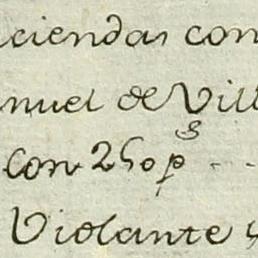 aciendas con
anuel de Vill
con 250 p.s
Violante